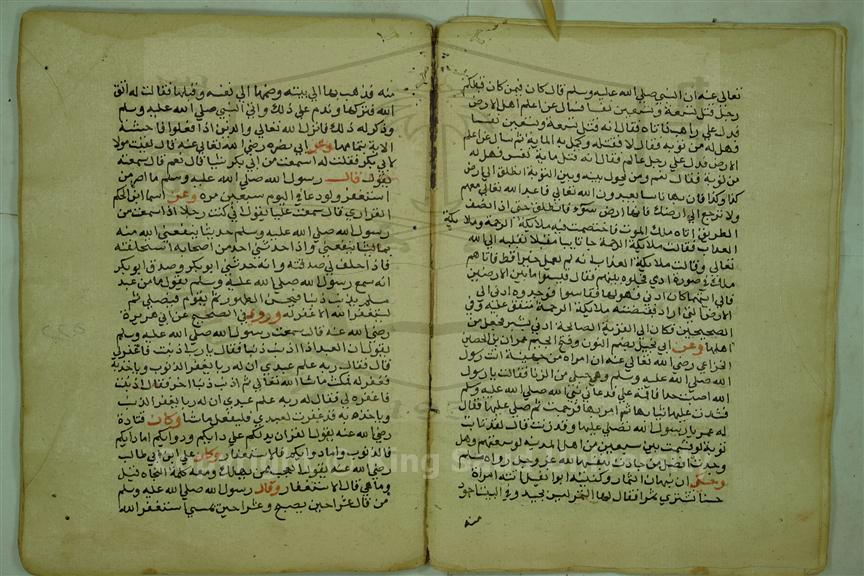 تعالي عنه ان النبي صلي الله عليه وسلم قال كان فيمن كان قبلكم
رجل قتل تسعة وتسعين نفسا فسال عن اعلم اهل الارض
فدل علي راهب فاتاه فقال انه قتل تسعة وتسعين نفسا
فهل له من توبة فقال لا فقتله وكمل به الماية ثم سال عن اعلم
الارض فدل علي رجل عالم فقال انه قتل ماية نفس فهل له
من توبة فقال نعم ومن يحول بينه وبين التوبة انطلق الي ارض
كذا وكذا فان بها ناسا يعبدون الله تعالي فاعبد الله تعالي معهم
ولا ترجع الي ارضك فانها ارض سوء فانطلق حتي اذا نصف
الطريق اتاه ملك الموت فاختصمت فيه ملايكة الرحمة وملايكة
العذاب فقالت ملايكة الرحمة جا تايبا مقبلا بقلبه الي الله
تعالي وقالت ملايكة العذاب انه لم يعمل خيرا قط فاتاهم
ملك في صورة ادمي فجعلوه بينهم فقال قيسوا ما بين الارضين
فالي ايتهما كان ادني فهو لها فقاسوا فوجدوه ادني الي
الارض التي اراد فقبضته ملايكة الرحمة متفق عليه وفي
الصحيحين فكان الي القرية الصالحة ادني بشبر فجعل من
اهلها وعن ابي نجيد بضم النون وفتح الجيم عمران بن الحصين
الخزاعي رضي الله تعالي عنه ان امراة من جهينة اتت رسول
الله صلي الله عليه وسلم وهي حبلي من الزنا فقالت يا رسول
الله اصبت حدا فاقمه علي فدعا نبي الله صلي الله عليه وسلم
فشدت عليها ثيابها ثم امر بها فرجمت ثم صلي عليها فقال
له عمر يا رسول الله تصلي عليها وقد زنت قال لقد تابت
توبة لو قسمت بين سبعين من اهل المدينة لوسعتهم وهل
وجدت افضل من جادت بنفسها لله عز وجل رواه مسلم
وحكي ان نبهان التمار وكنيته ابو مقبل اتته امراة
حسنا تشتري تمرا فقال لها التمر ليس بجيد وفي البيت اجود
منه
منه فذهب بها الي بيته وضمها الي نفسه وقبلها فقالت له اتق
الله فتركها وندم علي ذلك واتي النبي صلي الله عليه وسلم
وذكر له ذلك فانزل الله تعالي والذين اذا فعلوا فاحشة
الاية بتمامها وعن ابي نصره رضي الله تعالي عنه قال لقيت مولا
لابي بكر فقلت له اسمعت من ابي بكر شيا قال نعم قال سمعته
يقول قال رسول الله صلي الله عليه وسلم ما اصر من
استغفر ولو عاد في اليوم سبعين مرة وعن اسما ابن الحكم
الفزاري قال سمعت عليا يقول اني كنت رجلا اذا سمعت من
رسول الله صلي الله عليه وسلم حديثا ينفعني الله منه
بما شا ينفعني واذا حدثني احد من اصحابه استحلفته
فاذا حلف لي صدقته وانه حدثني ابو بكر وصدق ابو بكر
انه سمع رسول الله صلي الله عليه وسلم يقول ما من عبد
مسلم يذنب ذنبا فيحسن الطهور ثم يقوم فيصلي ثم
يستغفر الله الا غفر له وروي في الصحيح عن ابي هريرة
رضي الله عنه قال سمعت رسول الله صلي الله عليه وسلم
يقول ان العبد اذا اذنب ذنبا فقال يا رب اذنبت فاغفر لي
قال فقال ربه علم عبدي ان له ربا يغفر الذنوب وياخذ به
فغفر له ثم مكث ما شا الله تعالي ثم اذنب ذنبا اخر فقال اذنبت
فاغفره لي فقال له ربه علم عبدي ان له ربا يغفر الذنب
وياخذ به قد غفرت لعبدي فليفعل ما شا وكان قتادة
رضي الله عنه يقول القران يدلكم علي دايكم ودوايكم اما دايكم
فالذنوب واما دوايكم فالاستغفار وكان علي ابن ابي طالب
رضي الله عنه يقول العجب ممن يهلك ومعه كلمة النجاه قيل
وما هي قال الاستغفار وقال رسول الله صلي الله عليه وسلم
من قال عشرا حين يصبح وعشرا حين يمسي استغفر الله